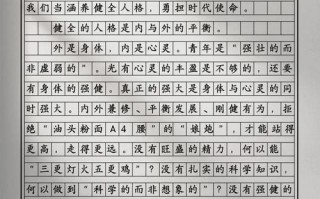 我们当涵养健全人格，勇担时代使命。
健全的人格是内与外的平衡。
外是身体，内是心灵。青年是“强壮的而
非虚弱的”。光有心灵的丰盈是不够的，还要
有身体的强健。真正的强大是身体与心灵的同
时强大。内外兼修、平衡发展、刚健有为，拒
绝“油头粉面A4腰”的“娘炮”，才能站得
更高，走得更远。没有旺盛的精力，何以能
“三更灯火五更鸡”？没有扎实的科学知识，
何以做到“科学的而非想象的”？没有强健的